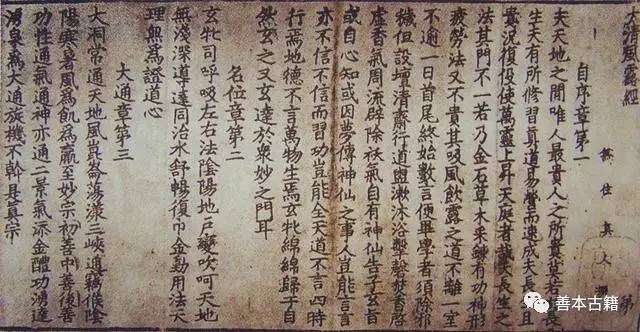 太清風露經
自序章第一
無住真人撰
夫天地之間唯人最貴人之所貴莫若
生夫有所修習真道易營而速成夫長生且
貴況復役使萬靈上昇天庭者哉夫長生之
法其門不一若乃金石草木采鍊有功神形
疲勞法又不貴其吸風飲露之道不離一室
不逾一日首尾終始數言便畢學者須除邪
穢但設壇清齋行道盥漱沐浴擊磬焚香啓
虛香氣周流辟除祅氣自有神仙告子玄旨
或自心知或因夢傳神仙之事人豈能言言
亦不信不信而習功豈能全天道不言四時
行焉地德不言萬物生焉玄牝綿綿歸于自
然玄之又玄達於衆妙之門耳
名位章第二
玄牝司呼吸左右法陰陽地户巽吹呵天地
無淺深道達同治水舒暢復巾金勤用法天
理無為證道心
大通章第三
大洞常通天地風崑崙蕩漾三峽通竊候陰
陽寒暑風為飢為羸至妙宗初善中善後善
功性通氣通神亦通二景氣添金醴功湧達
湧泉為大旋機不幹是真宗
善本古籍